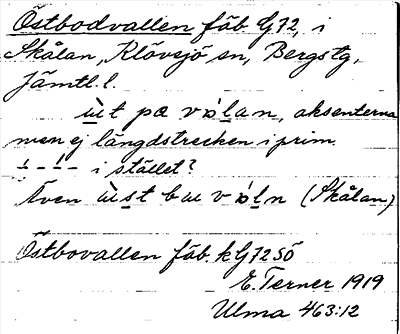 Östbodvallen fäb G72, i
Skålan, Klövsjö sn, Bergs tg,
Jämtl. l.
ùt pa vòlan, aksenterna
men ej längdstrecken i prim.
i stället?
Även ùst bu vòln (Skålan)
Östbovallen fäb. kG72SÖ
E. Terner 1919
Ulma 463:12